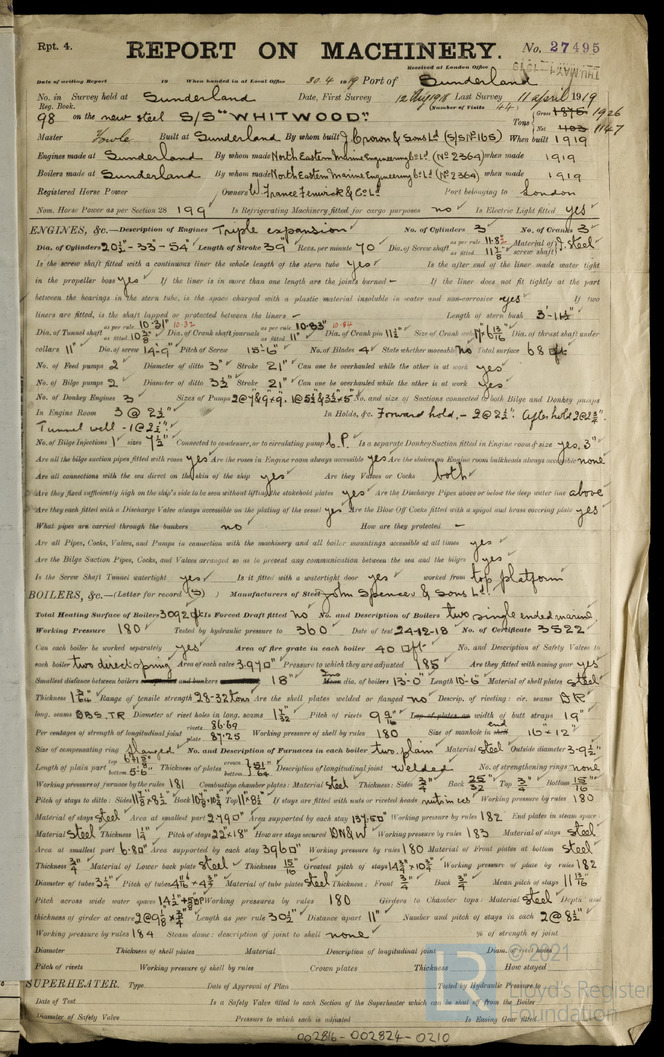 Rpt. 4.
REPORT ON MACHINERY.
No. 27495
Received at London Office
Date of writing Report 19 When handed in at Local Office 30.4.1919 Port of Sunderland
No. in Survey held at Sunderland Date, First Survey Last Survey 11 April 1919
Reg. Book. (Number of Visits 44)
98 on the new steel S/S "WHITWOOD"
Tons Gross 1875 1926 Net 1147
Master Built at Sunderland By whom built J. Crown & Sons Ld (S/S No 165) When built 1919
Engines made at Sunderland By whom made North Eastern Marine Engineering Co Ld (No 2364) when made 1919
Boilers made at Sunderland By whom made North Eastern Marine Engineering Co Ld (No 2364) when made 1919
Registered Horse Power Owners W. France Fenwick & Co Ld Port belonging to London
Nom. Horse Power as per Section 28 199 Is Refrigerating Machinery fitted for cargo purposes no Is Electric Light fitted yes
ENGINES, &c.—Description of Engines Triple expansion No. of Cylinders 3 No. of Cranks 3
Dia. of Cylinders 20½"-33"-54" Length of Stroke 39" Revs. per minute 70 Dia. of Screw shaft as per rule as fitted Material of screw shaft Steel
Is the screw shaft fitted with a continuous liner the whole length of the stern tube yes Is the after end of the liner made water tight
in the propeller boss yes If the liner is in more than one length are the joints burned – If the liner does not fit tightly at the part
between the bearings in the stern tube, is the space charged with a plastic material insoluble in water and non-corrosive yes If two
liners are fitted, is the shaft lapped or protected between the liners – Length of stern bush
Dia. of Tunnel shaft as per rule 10.31" 10.32 as fitted Dia. of Crank shaft journals as per rule 10.83" 10.84 as fitted 11" Dia. of Crank pin 11½" Size of Crank webs Dia. of thrust shaft under
collars 11" Dia. of screw 14'-9" Pitch of Screw 15'-6" No. of Blades 4 State whether moveable no Total surface 68
No. of Feed pumps 2 Diameter of ditto 3" Stroke 21" Can one be overhauled while the other is at work yes
No. of Bilge pumps 2 Diameter of ditto 3½" Stroke 21" Can one be overhauled while the other is at work yes
No. of Donkey Engines 3 Sizes of Pumps No. and size of Suctions connected to both Bilge and Donkey pumps
In Engine Room 3 @ 2½" In Holds, &c. Forward hold, - 2 @ 2½". After hold
Tunnel well - 1 @ 2½"
No. of Bilge Injections 1 sizes 7½" Connected to condenser, or to circulating pump C.P. Is a separate Donkey Suction fitted in Engine room & size yes, 3"
Are all the bilge suction pipes fitted with roses yes Are the roses in Engine room always accessible yes Are the sluices on Engine room bulkheads always accessible none
Are all connections with the sea direct on the skin of the ship yes Are they Valves or Cocks both
Are they fixed sufficiently high on the ship's side to be seen without lifting the stokehold plates yes Are the Discharge Pipes above or below the deep water line above
Are they each fitted with a Discharge Valve always accessible on the plating of the vessel yes Are the Blow Off Cocks fitted with a spigot and brass covering plate yes
What pipes are carried through the bunkers no How are they protected –
Are all Pipes, Cocks, Valves, and Pumps in connection with the machinery and all boiler mountings accessible at all times yes
Are the Bilge Suction Pipes, Cocks, and Valves arranged so as to prevent any communication between the sea and the bilges yes
Is the Screw Shaft Tunnel watertight yes Is it fitted with a watertight door yes worked from top platform
BOILERS, &c.—(Letter for record (S)) Manufacturers of Steel John Spencer & Sons Ld.
Total Heating Surface of Boilers 3092 Is Forced Draft fitted no No. and Description of Boilers two single ended marine
Working Pressure 180 Tested by hydraulic pressure to 360 Date of test 24-12-18 No. of Certificate 3522
Can each boiler be worked separately yes Area of fire grate in each boiler 40 No. and Description of Safety Valves to
each boiler two direct spring Area of each valve 3.970" Pressure to which they are adjusted 185 Are they fitted with easing gear yes
Smallest distance between boilers 18" dia. of boilers 13'-0" Length 10'-6" Material of shell plates steel
Thickness Range of tensile strength 28-32 tons Are the shell plates welded or flanged no Descrip. of riveting: cir. seams D.R.
long. seams D.B.S. T.R Diameter of rivet holes in long. seams Pitch of rivets width of butt straps 19"
Per centages of strength of longitudinal joint rivets 86.69 plate 87.25 Working pressure of shell by rules 180 Size of manhole in end 16 × 12"
Size of compensating ring flanged No. and Description of Furnaces in each boiler two plain Material steel Outside diameter
Length of plain part top bottom Thickness of plates crown bottom Description of longitudinal joint welded No. of strengthening rings none
Working pressure of furnace by the rules 181 Combustion chamber plates: Material steel Thickness: Sides ¾" Back 25/32 Top ¾" Bottom 15/16
Pitch of stays to ditto: Sides Back Top If stays are fitted with nuts or riveted heads nuts Working pressure by rules 180
Material of stays steel Area at smallest part 2.790" Area supported by each stay Working pressure by rules 182 End plates in steam space
Material steel Thickness Pitch of stays 22 × 18" How are stays secured D.N & W Working pressure by rules 183 Material of stays steel
Area at smallest part 6.80" Area supported by each stay 3960" Working pressure by rules 180 Material of Front plates at bottom steel
Thickness ¾" Material of Lower back plate steel Thickness 15/16 Greatest pitch of stays Working pressure of plate by rules 182
Diameter of tubes 3¼" Pitch of tubes Material of tube plates steel Thickness: Front ¾" Back ¾" Mean pitch of stays
Pitch across wide water spaces Working pressures by rules 180 Girders to Chamber tops: Material steel Depth and
thickness of girder at centre Length as per rule 30½" Distance apart 11" Number and pitch of stays in each 2 @ 8½"
Working pressure by rules 184 Steam dome: description of joint to shell none % of strength of joint
Diameter Thickness of shell plates Material Description of longitudinal joint Diam. of rivet holes
Pitch of rivets Working pressure of shell by rules Crown plates Thickness How stayed
SUPERHEATER. Type Date of Approval of Plan Tested by Hydraulic Pressure to
Date of Test Is a Safety Valve fitted to each Section of the Superheater which can be shut off from the Boiler
Diameter of Safety Valve Pressure to which each is adjusted Is Easing Gear fitted
© 2021
LR
Lloyd's Register
Foundation
002816-002824-0210